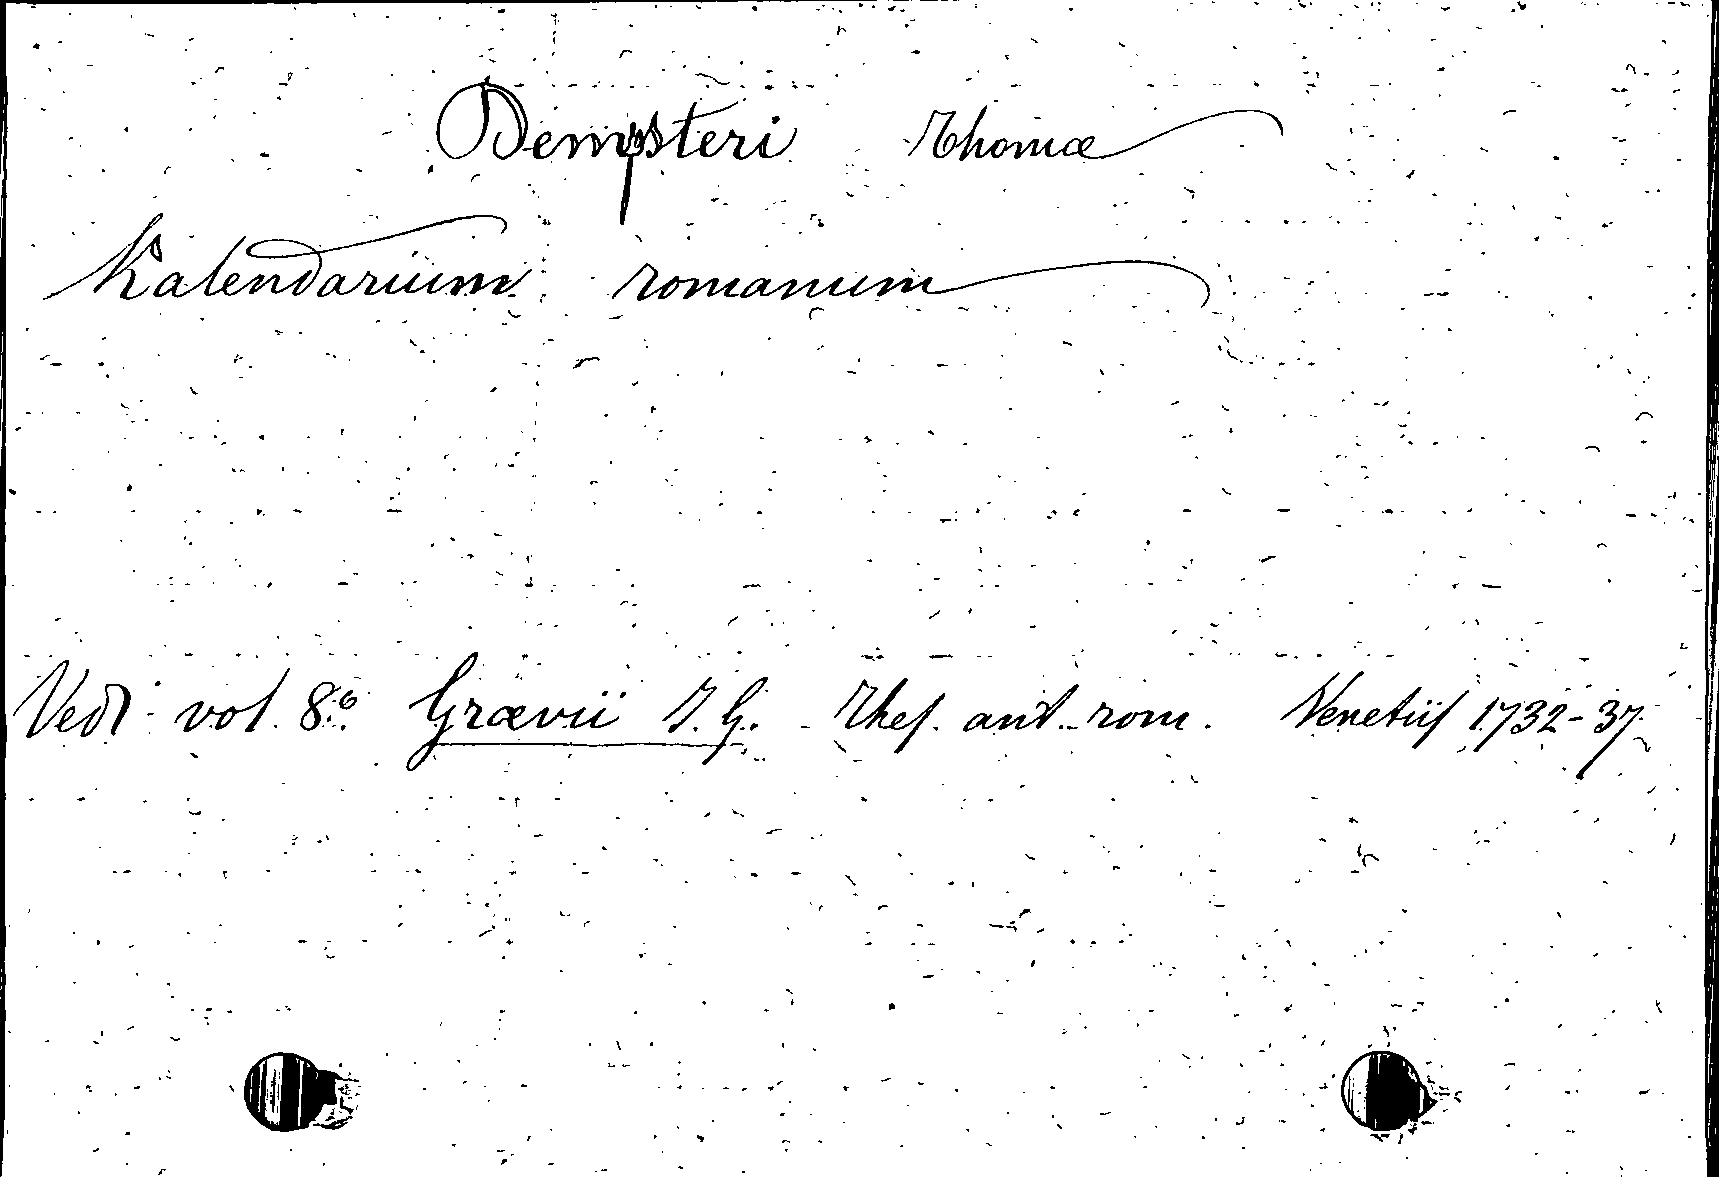 Dempsteri Thomæ
Kalendarium romanum
Vedi vol. 8º. Grævii J. G. Thes. ant. rom. Venetiis 1732-37.